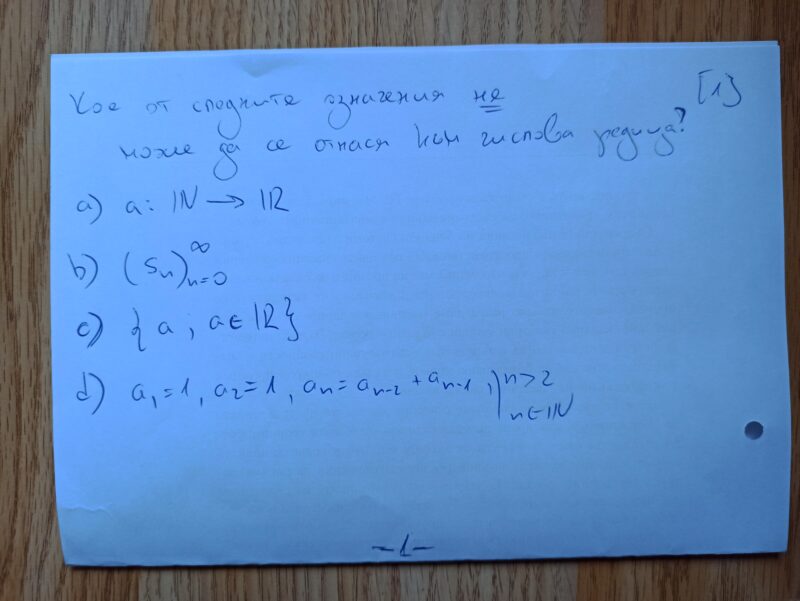 Кое от следните означения не [1]
може да се отнася към числова редица?
a) a: ℕ → ℝ
b) (sₙ)ₙ₌₀^∞
c) {a ; a∈ℝ}
d) a₁=1, a₂=1, aₙ=aₙ₋₂+aₙ₋₁, | n>2
n∈ℕ
-1-